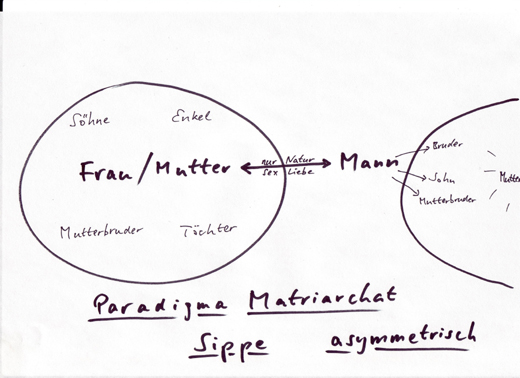 Söhne Enkel
Frau/Mutter nur Sex Natur Liebe Mann
Bruder
Sohn
Mutterbruder
Mutter
Mutterbruder Töchter
Paradigma Matriarchat
Sippe asymmetrisch